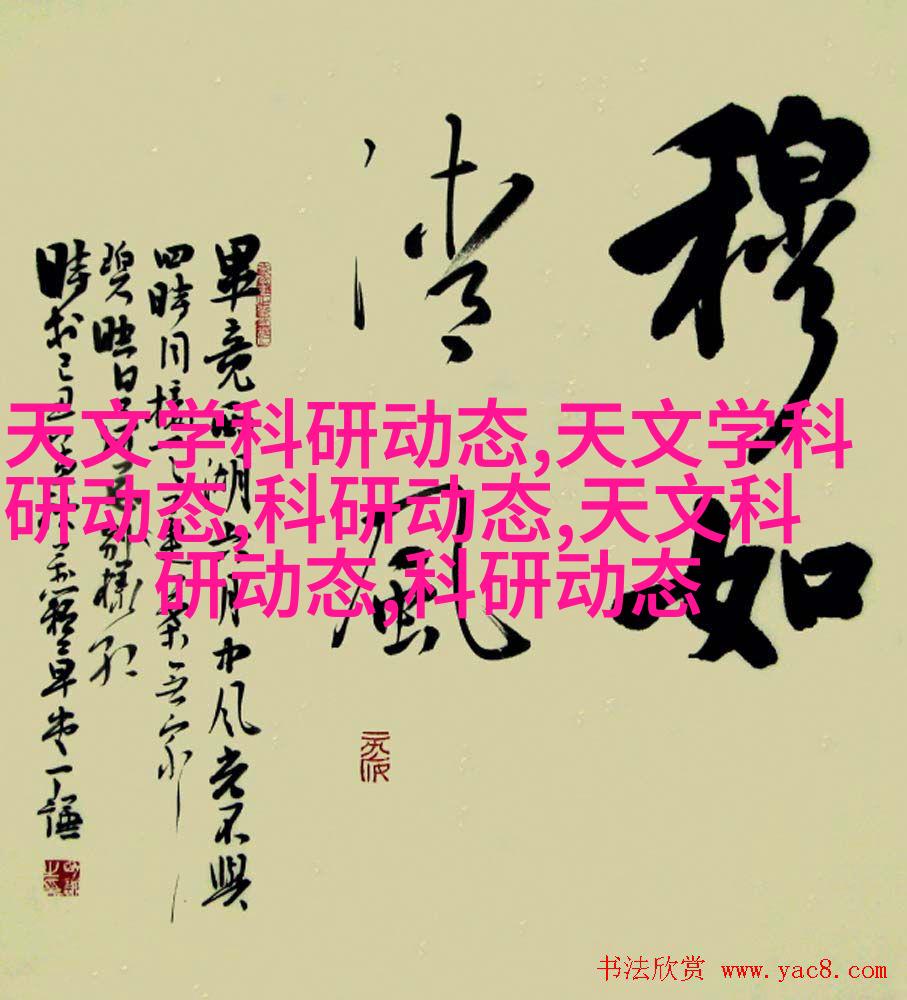 穆如
清風
畢竟西湖六月中风光不與
四時同接天蓮葉无穷
碧映日荷花别樣红
天文学科研动态,天文学科
研动态,科研动态,天文科
研动态,科研动态
书法欣赏 www.yac8.com